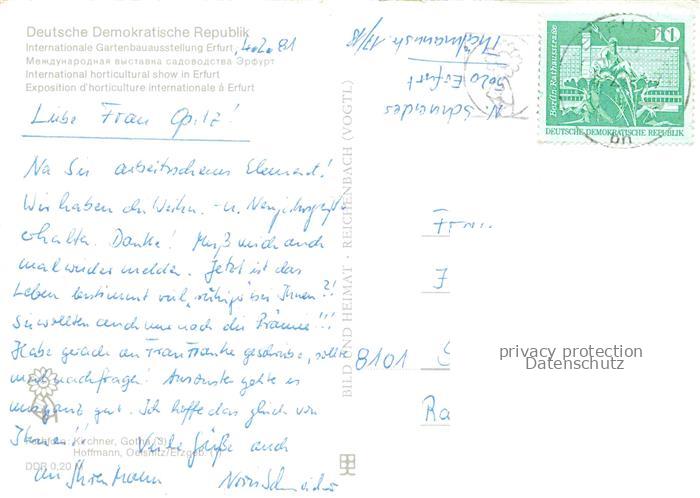 Deutsche Demokratische Republik
Internationale Gartenbauausstellung Erfurt
Международная выставка садоводства Эрфурт
International horticultural show in Erfurt
Exposition d'horticulture internationale à Erfurt
4.2.81
Liebe Frau Opitz!
Na Sie arbeitsscheues Element!
Wir haben die Weihn.- u. Neujahrsgrüße
erhalten. Danke! Muß mich auch
mal wieder melden. Jetzt ist das
Leben bestimmt viel ruhiger bei Ihnen?!
Sie wollten auch nur noch die Prämie!!!
Habe gerade an Frau Franke geschrieben, sollte
mal nachfragen! Ansonsten geht es
uns ganz gut. Ich hoffe das gleich von
Ihnen!! Viele Grüße auch
an Ihren Mann
Kirchner, Gotha (3)
Hoffmann, Oelsnitz/Erzgeb. (1)
DDR 0,20 M
BILD UND HEIMAT · REICHENBACH (VOGTL)
N. Schneider
5020 Erfurt
Thälmannstr.
Berlin-Rathausstraße
10
DEUTSCHE DEMOKRATISCHE REPUBLIK
8101
Ra
privacy protection
Datenschutz